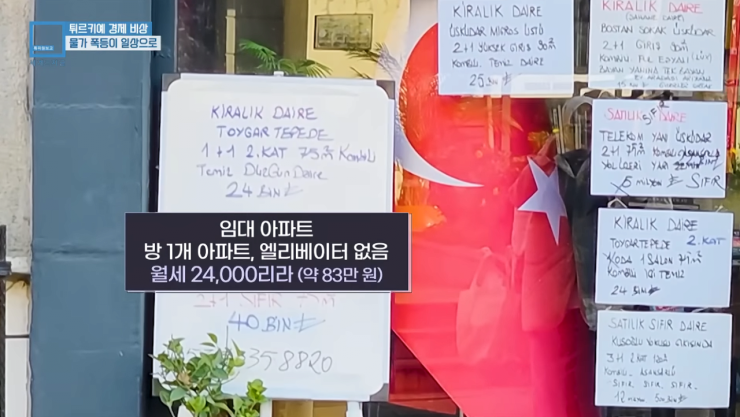 튀르키예 경제 비상
물가 폭등이 일상으로
KİRALIK DAİRE
TOYGARTEPEDE
1+1 2.KAT 75m² Kombili
Temiz DÜZGÜN DAİRE
24 BİN ₺
임대 아파트
방 1개 아파트, 엘리베이터 없음
월세 24,000리라 (약 83만 원)
2+1 SIFIR
40 BİN ₺
358820
KİRALIK DAİRE
ÜSKÜDAR MİGROS ÜSTÜ
2+1 YÜKSEK GİRİŞ 90m²
KOMBİLİ TEMİZ DAİRE
25 BİN ₺
KİRALIK DAİRE
BOSTAN SOKAK ÜSKÜDAR
2+1 GİRİŞ 80m²
SATILIK DAİRE
SIFIR
TELEKOM YANI ÜSKÜDAR
2+1 71m² KOMBİLİ
5 milyon ₺ SIFIR
KİRALIK DAİRE
TOYGARTEPEDE 2.KAT
1 SALON 75m²
KOMBİLİ İÇİ TEMİZ
24 BİN ₺
SATILIK SIFIR DAİRE
3+1 2.KAT
KOMBİLİ ASANSÖRLÜ
SIFIR SIFIR SIFIR